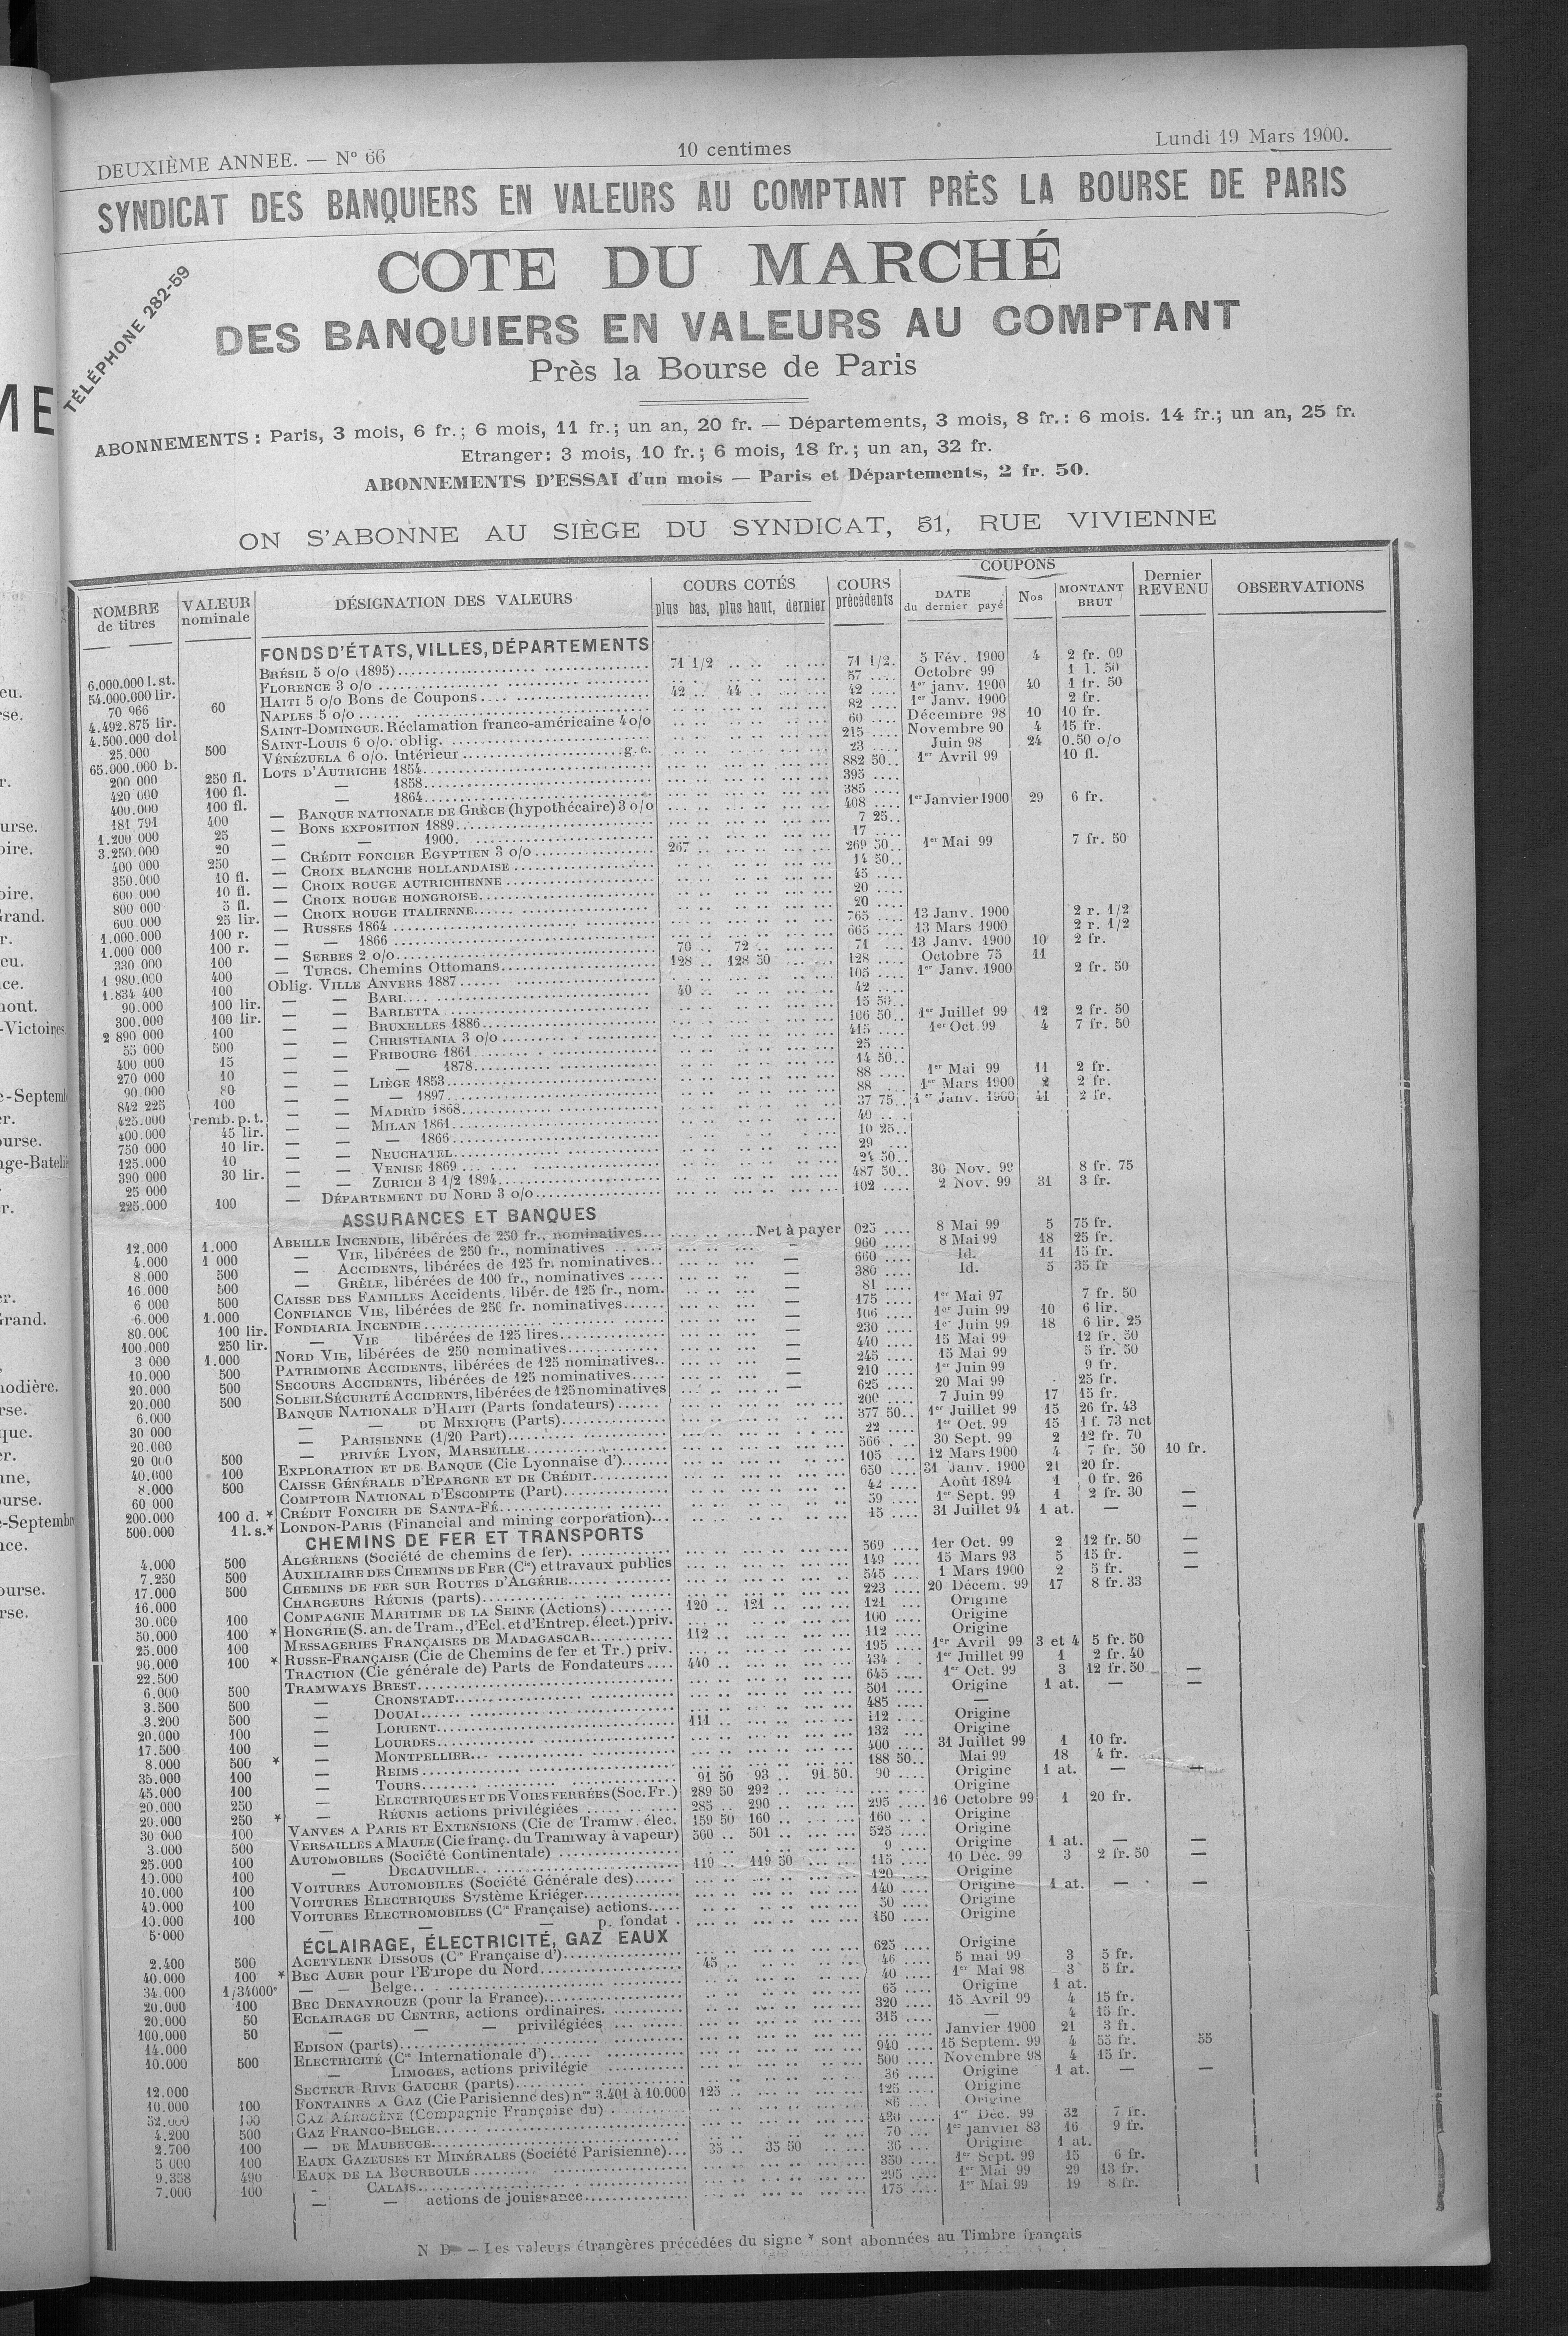 DEUXIÈME ANNEE. — N° 66
10 centimes
Lundi 19 Mars 1900.
SYNDICAT DES BANQUIERS EN VALEURS AU COMPTANT PRÈS LA BOURSE DE PARIS
TÉLÉPHONE 282-59
COTE DU MARCHÉ
DES BANQUIERS EN VALEURS AU COMPTANT
Près la Bourse de Paris
ABONNEMENTS : Paris, 3 mois, 6 fr.; 6 mois, 11 fr.; un an, 20 fr. — Départements, 3 mois, 8 fr.: 6 mois. 14 fr.; un an, 25 fr.
Etranger: 3 mois, 10 fr.; 6 mois, 18 fr.; un an, 32 fr.
ABONNEMENTS D'ESSAI d'un mois — Paris et Départements, 2 fr. 50.
ON S'ABONNE AU SIÈGE DU SYNDICAT, 51, RUE VIVIENNE
NOMBRE de titres
VALEUR nominale
DÉSIGNATION DES VALEURS
COURS COTÉS
plus bas, plus haut, dernier
COURS précédents
COUPONS
DATE du dernier payé
Nos
MONTANT BRUT
Dernier REVENU
OBSERVATIONS
FONDS D'ÉTATS, VILLES, DÉPARTEMENTS
6.000.000 l. st. BRÉSIL 5 o/o (1895) 71 1/2 71 1/2. 5 Fév. 1900 4 2 fr. 09
54.000.000 lir. FLORENCE 3 o/o 57 Octobre 99 1 l. 50
70 966 60 HAITI 5 o/o Bons de Coupons 42 44 42 1er janv. 1900 40 1 fr. 50
4.492.875 lir. NAPLES 5 o/o 82 1er Janv. 1900 2 fr.
4.500.000 dol SAINT-DOMINGUE. Réclamation franco-américaine 4 o/o 60 Décembre 98 10 10 fr.
25.000 500 SAINT-LOUIS 6 o/o. oblig. 215 Novembre 90 4 15 fr.
65.000.000 b. VÉNÉZUELA 6 o/o. Intérieur g. c. 23 Juin 98 24 0.50 o/o
200 000 250 fl. LOTS D'AUTRICHE 1854 882 50 1er Avril 99 10 fl.
420 000 100 fl. — 1858 395
400.000 100 fl. — 1864 385
181 791 400 — BANQUE NATIONALE DE GRÈCE (hypothécaire) 3 o/o 408 1er Janvier 1900 29 6 fr.
1.200 000 25 — BONS EXPOSITION 1889 7 25
3.250.000 20 — — 1900 17
400 000 250 — CRÉDIT FONCIER EGYPTIEN 3 o/o 267 269 50 1er Mai 99 7 fr. 50
350.000 10 fl. — CROIX BLANCHE HOLLANDAISE 14 50
600 000 10 fl. — CROIX ROUGE AUTRICHIENNE 45
800 000 5 fl. — CROIX ROUGE HONGROISE 20
600 000 25 lir. — CROIX ROUGE ITALIENNE 20
1.000.000 100 r. — RUSSES 1864 765 13 Janv. 1900 2 r. 1/2
1.000 000 100 r. — — 1866 665 13 Mars 1900 2 r. 1/2
330 000 100 — SERBES 2 o/o 70 72 71 13 Janv. 1900 10 2 fr.
1 980.000 400 — TURCS. Chemins Ottomans 128 128 50 128 Octobre 75 11
1.834 400 100 Oblig. VILLE ANVERS 1887 105 1er Janv. 1900 2 fr. 50
90.000 100 lir. — — BARI 40 42
300.000 100 lir. — — BARLETTA 15 50
2 890 000 100 — — BRUXELLES 1886 106 50 1er Juillet 99 12 2 fr. 50
55 000 500 — — CHRISTIANIA 3 o/o 415 1er Oct. 99 4 7 fr. 50
400 000 15 — — FRIBOURG 1861 25
270 000 10 — — — 1878 14 50
90.000 80 — — LIÉGE 1853 88 1er Mai 99 11 2 fr.
842 225 100 — — — 1897 88 1er Mars 1900 2 2 fr.
425.000 remb. p. t. — — MADRID 1868 37 75 1er Janv. 1900 41 2 fr.
400.000 45 lir. — — MILAN 1861 40
750 000 10 lir. — — — 1866 10 25
125.000 10 — — NEUCHATEL 29
390 000 30 lir. — — VENISE 1869 24 50
25 000 — — ZURICH 3 1/2 1894 487 50 30 Nov. 99 8 fr. 75
225.000 100 — DÉPARTEMENT DU NORD 3 o/o 102 2 Nov. 99 31 3 fr.
ASSURANCES ET BANQUES
12.000 1.000 ABEILLE INCENDIE, libérées de 250 fr., nominatives Net à payer 025 8 Mai 99 5 75 fr.
4.000 1 000 — VIE, libérées de 250 fr., nominatives — 960 8 Mai 99 18 25 fr.
8.000 500 — ACCIDENTS, libérées de 125 fr. nominatives — 660 Id. 11 15 fr.
16.000 500 — GRÊLE, libérées de 100 fr., nominatives — 380 Id. 5 35 fr
6 000 500 CAISSE DES FAMILLES Accidents, libér. de 125 fr., nom. — 81
6.000 1.000 CONFIANCE VIE, libérées de 250 fr. nominatives — 175 1er Mai 97 7 fr. 50
80.000 100 lir. FONDIARIA INCENDIE — 106 1er Juin 99 10 6 lir.
100.000 250 lir. — VIE libérées de 125 lires — 230 1er Juin 99 18 6 lir. 25
3 000 1.000 NORD VIE, libérées de 250 nominatives — 440 15 Mai 99 12 fr. 50
10.000 500 PATRIMOINE ACCIDENTS, libérées de 125 nominatives — 245 15 Mai 99 5 fr. 50
20.000 500 SECOURS ACCIDENTS, libérées de 125 nominatives — 210 1er Juin 99 9 fr.
20.000 500 SOLEIL SÉCURITÉ ACCIDENTS, libérées de 125 nominatives — 625 20 Mai 99 25 fr.
6.000 BANQUE NATIONALE D'HAITI (Parts fondateurs) 200 7 Juin 99 17 15 fr.
30 000 — DU MEXIQUE (Parts) 377 50 1er Juillet 99 15 26 fr. 43
20.000 — PARISIENNE (1/20 Part) 22 1er Oct. 99 15 1 f. 73 net
20 000 500 — PRIVÉE LYON, MARSEILLE 566 30 Sept. 99 2 12 fr. 70
40.000 100 EXPLORATION ET DE BANQUE (Cie Lyonnaise d') 105 12 Mars 1900 4 7 fr. 50 10 fr.
8.000 500 CAISSE GÉNÉRALE D'EPARGNE ET DE CRÉDIT 650 31 Janv. 1900 21 20 fr.
60 000 COMPTOIR NATIONAL D'ESCOMPTE (Part) 42 Août 1894 1 0 fr. 26
200.000 100 d. * CRÉDIT FONCIER DE SANTA-FÉ 59 1er Sept. 99 1 2 fr. 30 —
500.000 1 l. s. * LONDON-PARIS (Financial and mining corporation) 15 31 Juillet 94 1 at. — —
CHEMINS DE FER ET TRANSPORTS
4.000 500 ALGÉRIENS (Société de chemins de fer). 569 1er Oct. 99 2 12 fr. 50 —
7.250 500 AUXILIAIRE DES CHEMINS DE FER (Cie) et travaux publics 149 15 Mars 93 5 15 fr. —
17.000 500 CHEMINS DE FER SUR ROUTES D'ALGÉRIE 545 1 Mars 1900 2 5 fr. —
16.000 CHARGEURS RÉUNIS (parts) 223 20 Décem. 99 17 8 fr. 33
30.000 100 COMPAGNIE MARITIME DE LA SEINE (Actions) 120 121 121 Origine
50.000 100 * HONGRIE (S. an. de Tram., d'Ecl. et d'Entrep. élect.) priv. 100 Origine
25.000 100 MESSAGERIES FRANÇAISES DE MADAGASCAR 112 112 Origine
96.000 100 * RUSSE-FRANÇAISE (Cie de Chemins de fer et Tr.) priv. 195 1er Avril 99 3 et 4 5 fr. 50
22.500 TRACTION (Cie générale de) Parts de Fondateurs 440 434 1er Juillet 99 1 2 fr. 40
6.000 500 TRAMWAYS BREST 645 1er Oct. 99 3 12 fr. 50 —
3.500 500 — CRONSTADT 501 Origine 1 at. — —
3.200 500 — DOUAI 485 —
20.000 100 — LORIENT 111 112 Origine
17.500 100 — LOURDES 132 Origine
8.000 500 * — MONTPELLIER 400 31 Juillet 99 1 10 fr.
35.000 100 — REIMS 188 50 Mai 99 18 4 fr.
45.000 100 — TOURS 91 50 93 91 50 90 Origine 1 at. — —
20.000 250 — ELECTRIQUES ET DE VOIES FERRÉES (Soc. Fr.) 289 50 292 Origine
20.000 250 * — RÉUNIS actions privilégiées 285 290 295 16 Octobre 99 1 20 fr.
30 000 100 VANVES A PARIS ET EXTENSIONS (Cie de Tramw. élec. 159 50 160 160 Origine
3.000 500 VERSAILLES A MAULE (Cie franç. du Tramway à vapeur) 500 501 525 Origine
25.000 100 AUTOMOBILES (Société Continentale) 9 Origine 1 at. — —
10.000 100 — DECAUVILLE 119 119 50 115 10 Déc. 99 3 2 fr. 50 —
10.000 100 VOITURES AUTOMOBILES (Société Générale des) 120 Origine
40.000 100 VOITURES ELECTRIQUES Système Kriéger 140 Origine 1 at. — —
10.000 100 VOITURES ELECTROMOBILES (Cie Française) actions 50 Origine
5.000 — — — p. fondat. 150 Origine
ÉCLAIRAGE, ÉLECTRICITÉ, GAZ EAUX
2.400 500 ACETYLENE DISSOUS (Cie Française d') 625 Origine
40.000 100 * BEC AUER pour l'Europe du Nord 45 46 5 mai 99 3 5 fr.
34.000 1/34000e — — Belge 40 1er Mai 98 3 5 fr.
20.000 100 BEC DENAYROUZE (pour la France) 65 Origine 1 at.
20.000 50 ECLAIRAGE DU CENTRE, actions ordinaires. 320 15 Avril 99 4 15 fr.
100.000 50 — — — privilégiées 315 — 4 15 fr.
14.000 EDISON (parts) Janvier 1900 21 3 fr.
10.000 500 ELECTRICITÉ (Cie Internationale d') 940 15 Septem. 99 4 55 fr. 55
— LIMOGES, actions privilégié 500 Novembre 98 4 15 fr.
12.000 SECTEUR RIVE GAUCHE (parts) 36 Origine 1 at. — —
10.000 100 FONTAINES A GAZ (Cie Parisienne des) nos 3.401 à 10.000 125 125 Origine
52.000 100 GAZ AÉROGÈNE (Compagnie Française du) 86 Origine
4.200 500 GAZ FRANCO-BELGE 430 1er Dec. 99 32 7 fr.
2.700 100 — DE MAUBEUGE 70 1er janvier 83 16 9 fr.
5 000 100 EAUX GAZEUSES ET MINÉRALES (Société Parisienne) 35 35 50 36 Origine 1 at.
9.358 490 EAUX DE LA BOURBOULE 350 1er Sept. 99 15 6 fr.
7.000 100 - CALAIS 295 1er Mai 99 29 13 fr.
— — actions de jouissance 175 1er Mai 99 19 8 fr.
N — Les valeurs étrangères précédées du signe * sont abonnées au Timbre français